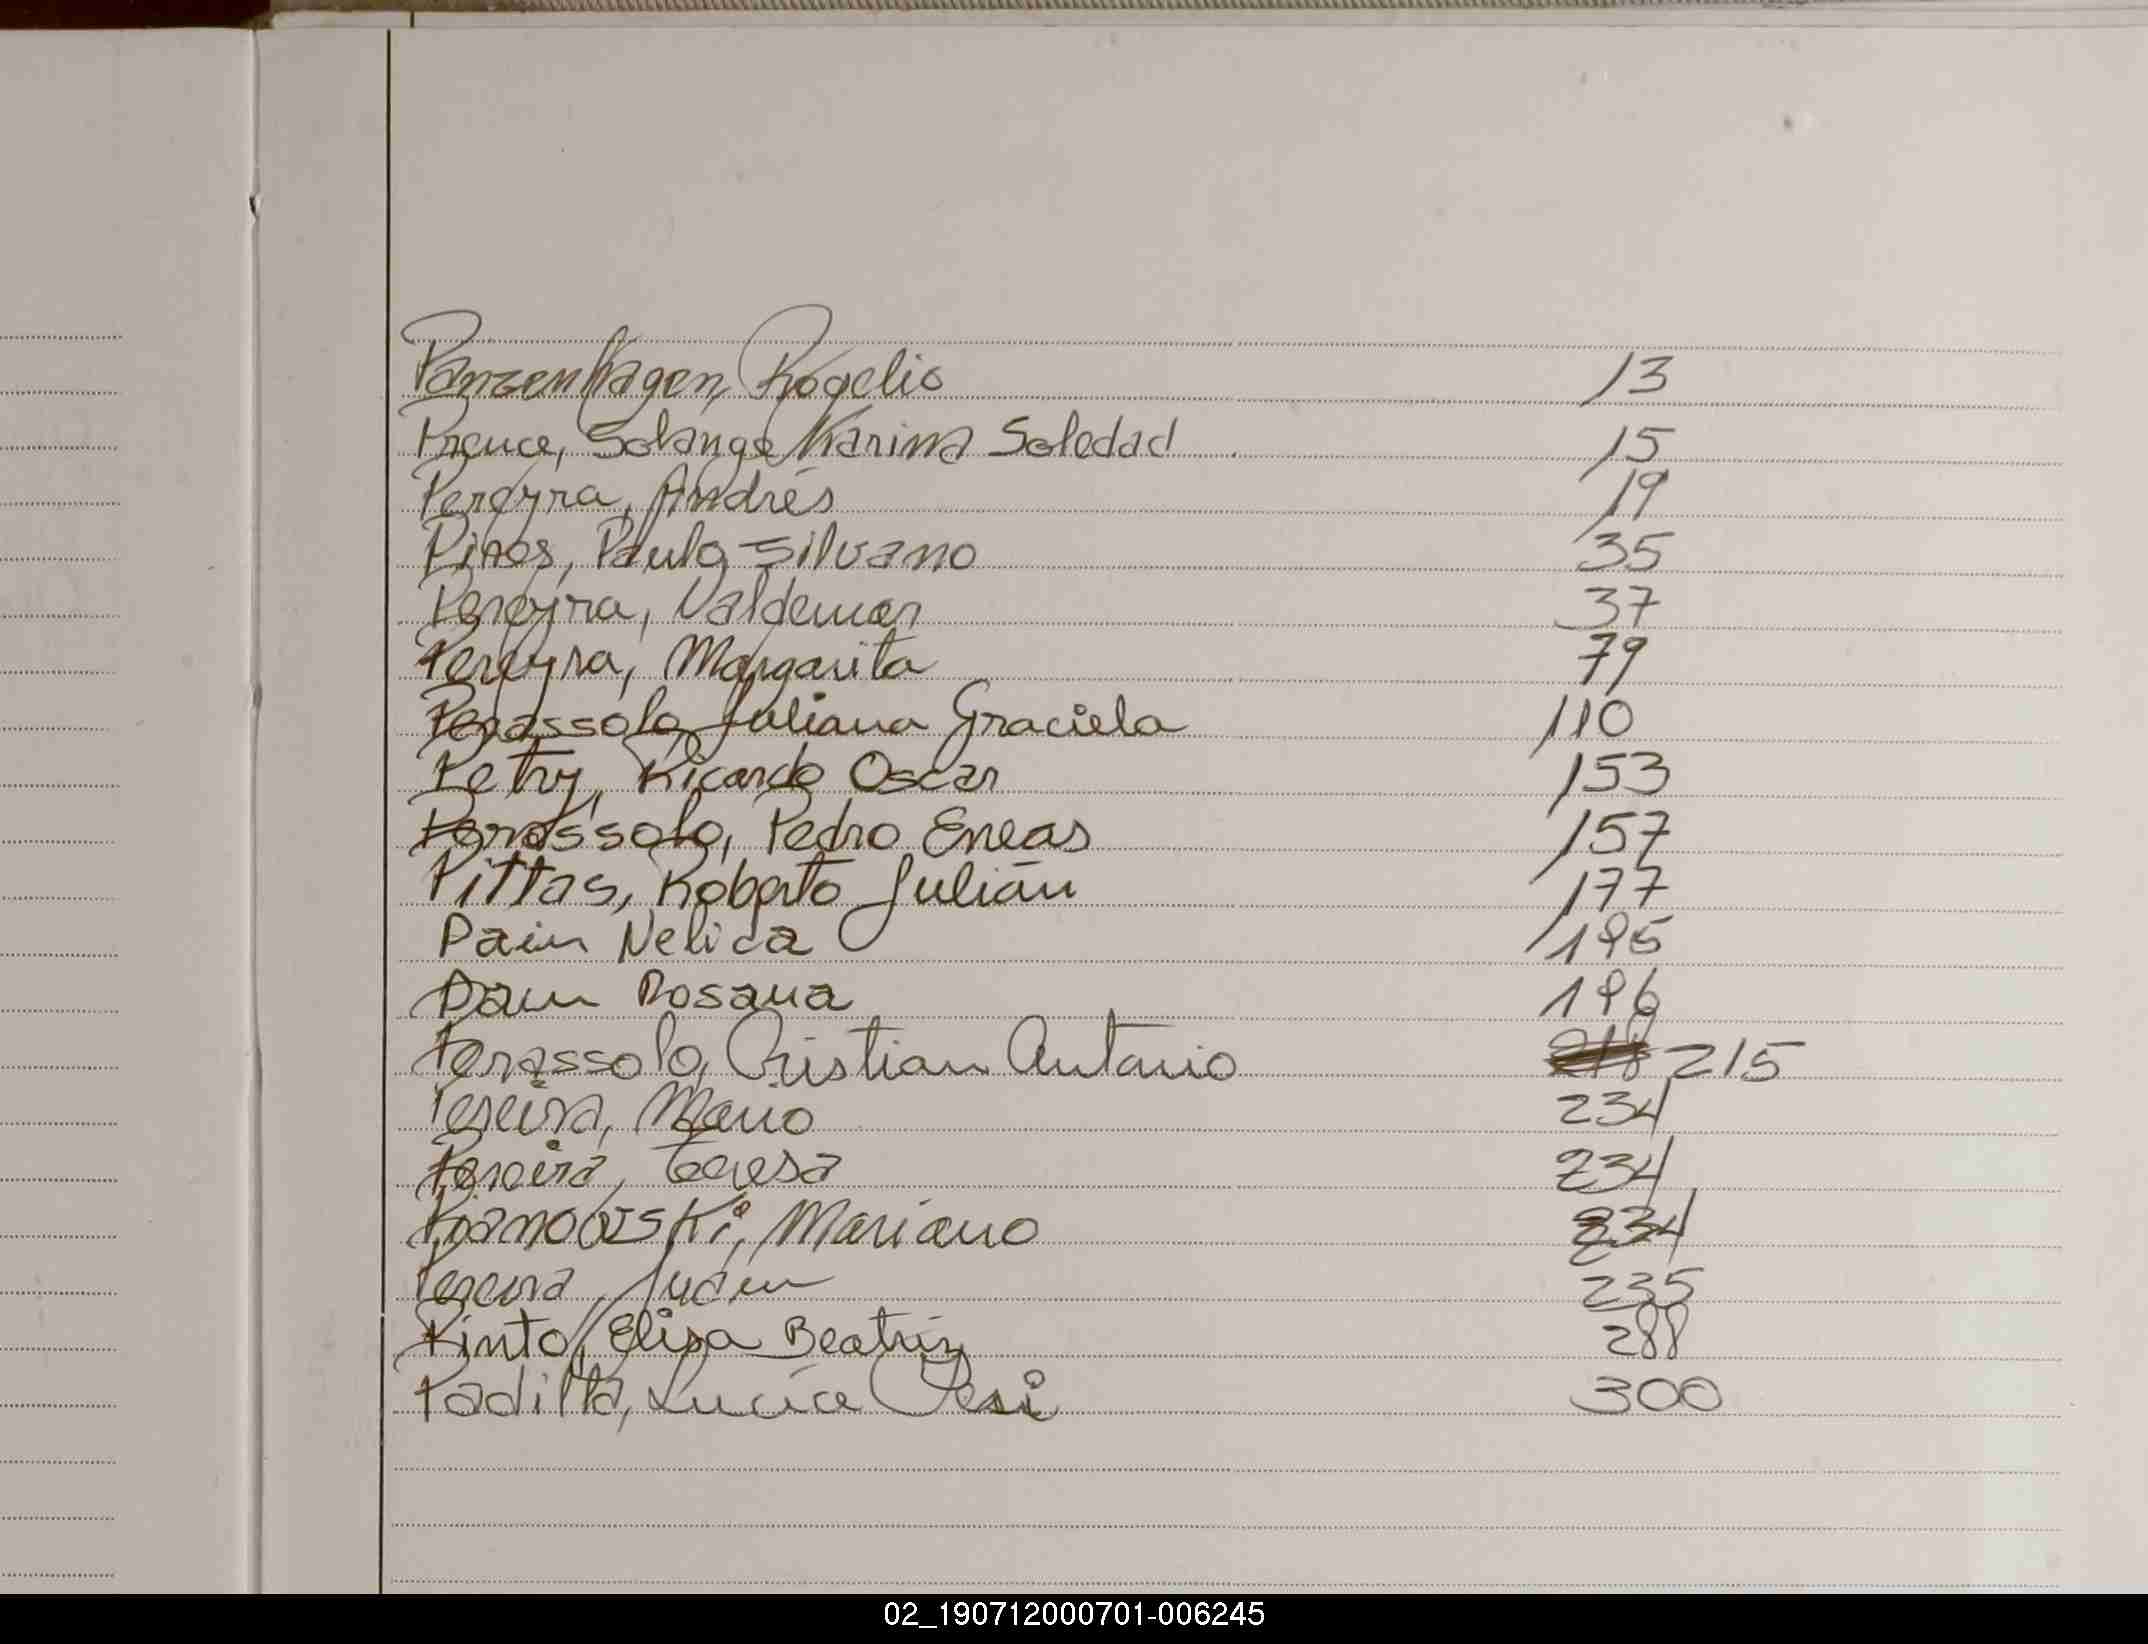 Panzenhagen, Rogelio 13
Preuce, Solange Karina Soledad 15
Pereyra, Andrés 19
Pires, Paulo Silvano 35
Pereyra, Valdemar 37
Pereyra, Margarita 79
Perassolo, Juliana Graciela 110
Petry, Ricardo Oscar 153
Perassolo, Pedro Eneas 157
Pittas, Roberto Julián 177
Pain Nelida 195
Pain Rosana 196
Perassolo, Cristian Antonio 215
Pereira, Mario 234
Pereira, Teresa 234
Mariano 234
Pereira, 235
Pinto, Elisa Beatriz 288
Padilla, 300
02_190712000701-006245